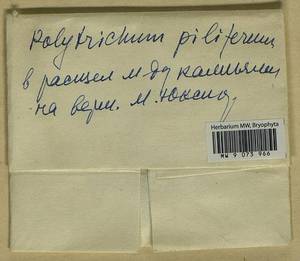 Polytrichum piliferum
в расщел. м-ду камнями
на верш. М. Юксп
Herbarium MW, Bryophyta
MW 9 073 966